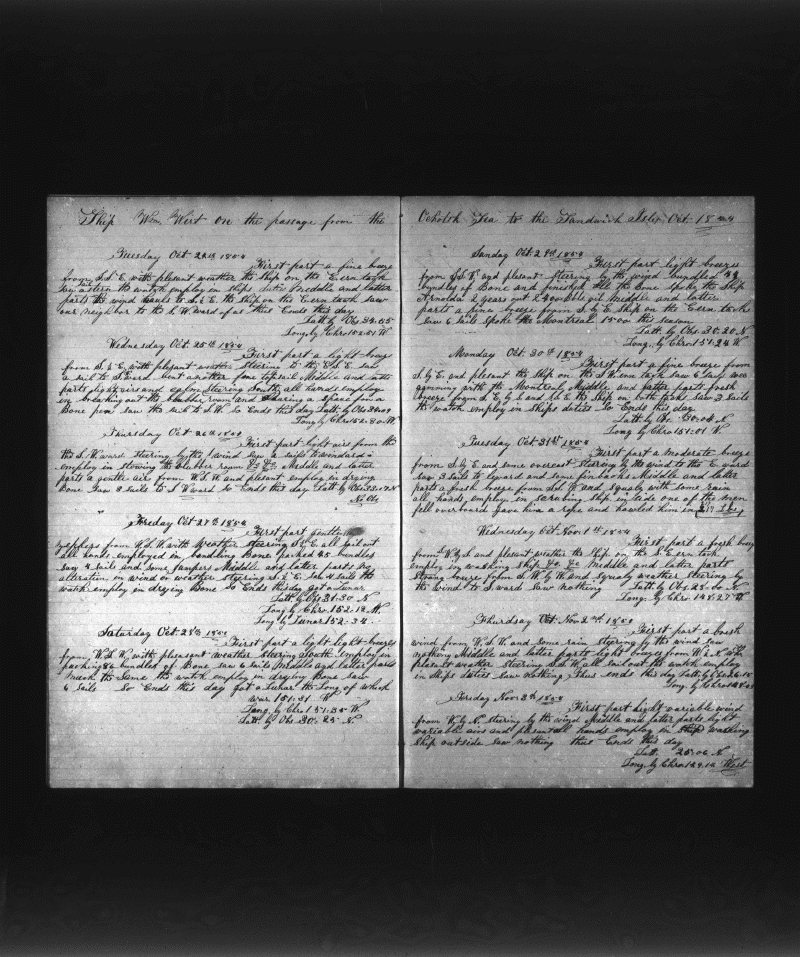 Ship Wm Wirt on the passage from the
Tuesday Oct 24th 1854
First part a fine breeze
from S. & E. with plesent weather the ship on the E.ern tack
the watch employ in ships duties Meddle and latter
parts the wind hauls to S. & E. the ship on the E.ern tack saw
our neighbor to the S. W. ward of us thus Ends this day
Latt by Obs
Long. by Chr 152.01 W.
Wednesday Oct 25th 1854
First part a light breeze
from S. & E. with plesent weather steering to the E. S. E. saw
a sail to S. ward bent another fore topsail Middle and latter
parts light airs and calm steering South all hands employ
in breaking out the blubber room and clearing a space for a
Bone pen saw the sail to S. W. So Ends this day Latt by Obs
Long by Chro 152.50. W.
Thursday Oct 26th 1854
First part light airs from the
the S. W. ward steering by the wind saw 2 sails to windard
employ in stowing the blubber room &c &c. Meddle and latter
parts a gentle air from W. S. W. and plesent employ in drying
Bone. Saw 8 sails to S. W ward So Ends this day Latt by Obs 33.17 N
No Obs
Friday Oct 27th 1854
First part gentle
zepphers from W. S. W. with Weather steering S. E. all sail out
all hands employed in bundling Bone packed 45 bundles
saw 4 sails and some jumpers Middle and latter parts no
alteration in wind or weather steering S. & E. saw 4 sails the
watch employ in drying Bone So Ends this day got a Lunar
Latt by Obs 31.30 N
Long by Chro. 152.18. W.
Long by Lunar 152.34.
Saturday Oct. 28th 1854
First part a light light breeze
from W. S. W. with pleasent weather steering South employ in
packing 86 bundles of Bone saw 6 sails Meddle and latter parts
much the same the watch employ in drying Bone saw
4 sails So Ends this day got a Lunar the Long of which
was 151.31. W.
Long by Chro 151.35 W.
Latt. by Obs 30.25 N.
Ochotsk Sea to the Sandwich Isles Oct. 18
Sunday Oct 29th 1854
First part light breezes
from S. S. W. and plesent steering by the wind bundled
bundles of Bone and finished all the Bone spoke the Ship
Arnolda 2 years out 2400 bbl oil Middle and latter
parts a fine breeze from S. & E. Ship on the E.ern tack
saw 6 sails Spoke the Montreal 1500 this season
Latt. by Obs 30.20 N
Long. by Chro 151.24 W.
Monday Oct. 30th 1854
First part a fine breeze from
S. & E. and plesent the ship on the S. W.ern tack saw 2 sails was
gamming with the Montreal Meddle and latter parts fresh
breeze from S. E. & S. and S. E the Ship on both tacks saw 3 sails
the watch employ in Ships duties So Ends this day
Latt. by Obs. 30.04 N
Long by Chro 151.01 W.
Tuesday Oct 31st 1854
First part a moderate breeze
from S. & E. and some overcast steering by the wind to the E. ward
saw 3 sails to leward and some finbacks Middle and latter
parts a fresh breeze from S. W. and squaly with some rain
all hands employ in scrubing ship in side one of the men
fell overboard gave him a rope and hawled him in
Wednesday Oct Nov 1st 1854
First part a fresh breeze
from W. & S and plesent weather the Ship on the S. E.ern tack
employ in washing Ship &c. &c. Middle and latter parts
strong breeze from S. W. & W. and squaly weather steering by
the Wind to S. ward Saw nothing Latt by Obs. 28.00. N
Long. by Chro. 148.27 W.
Thursday Oct Nov 2nd 1854
First part a fresh
wind from W. S. W. and some rain steering by the wind saw
nothing Middle and latter parts light breezes from W. & N. with
plesent weather steering S. S. W. all sail out the watch employ
in Ships duties saw nothing Thus ends this day
Long. by Chro
Friday Nov. 3th 1854
First part light variable wind
from W. & N. steering by the wind Middle and latter parts light
variable airs and plesent all hands employ in ship washing
Ship outside saw nothing thus Ends this day
Latt. 25.06 N
Long. by Chro 149.16 West